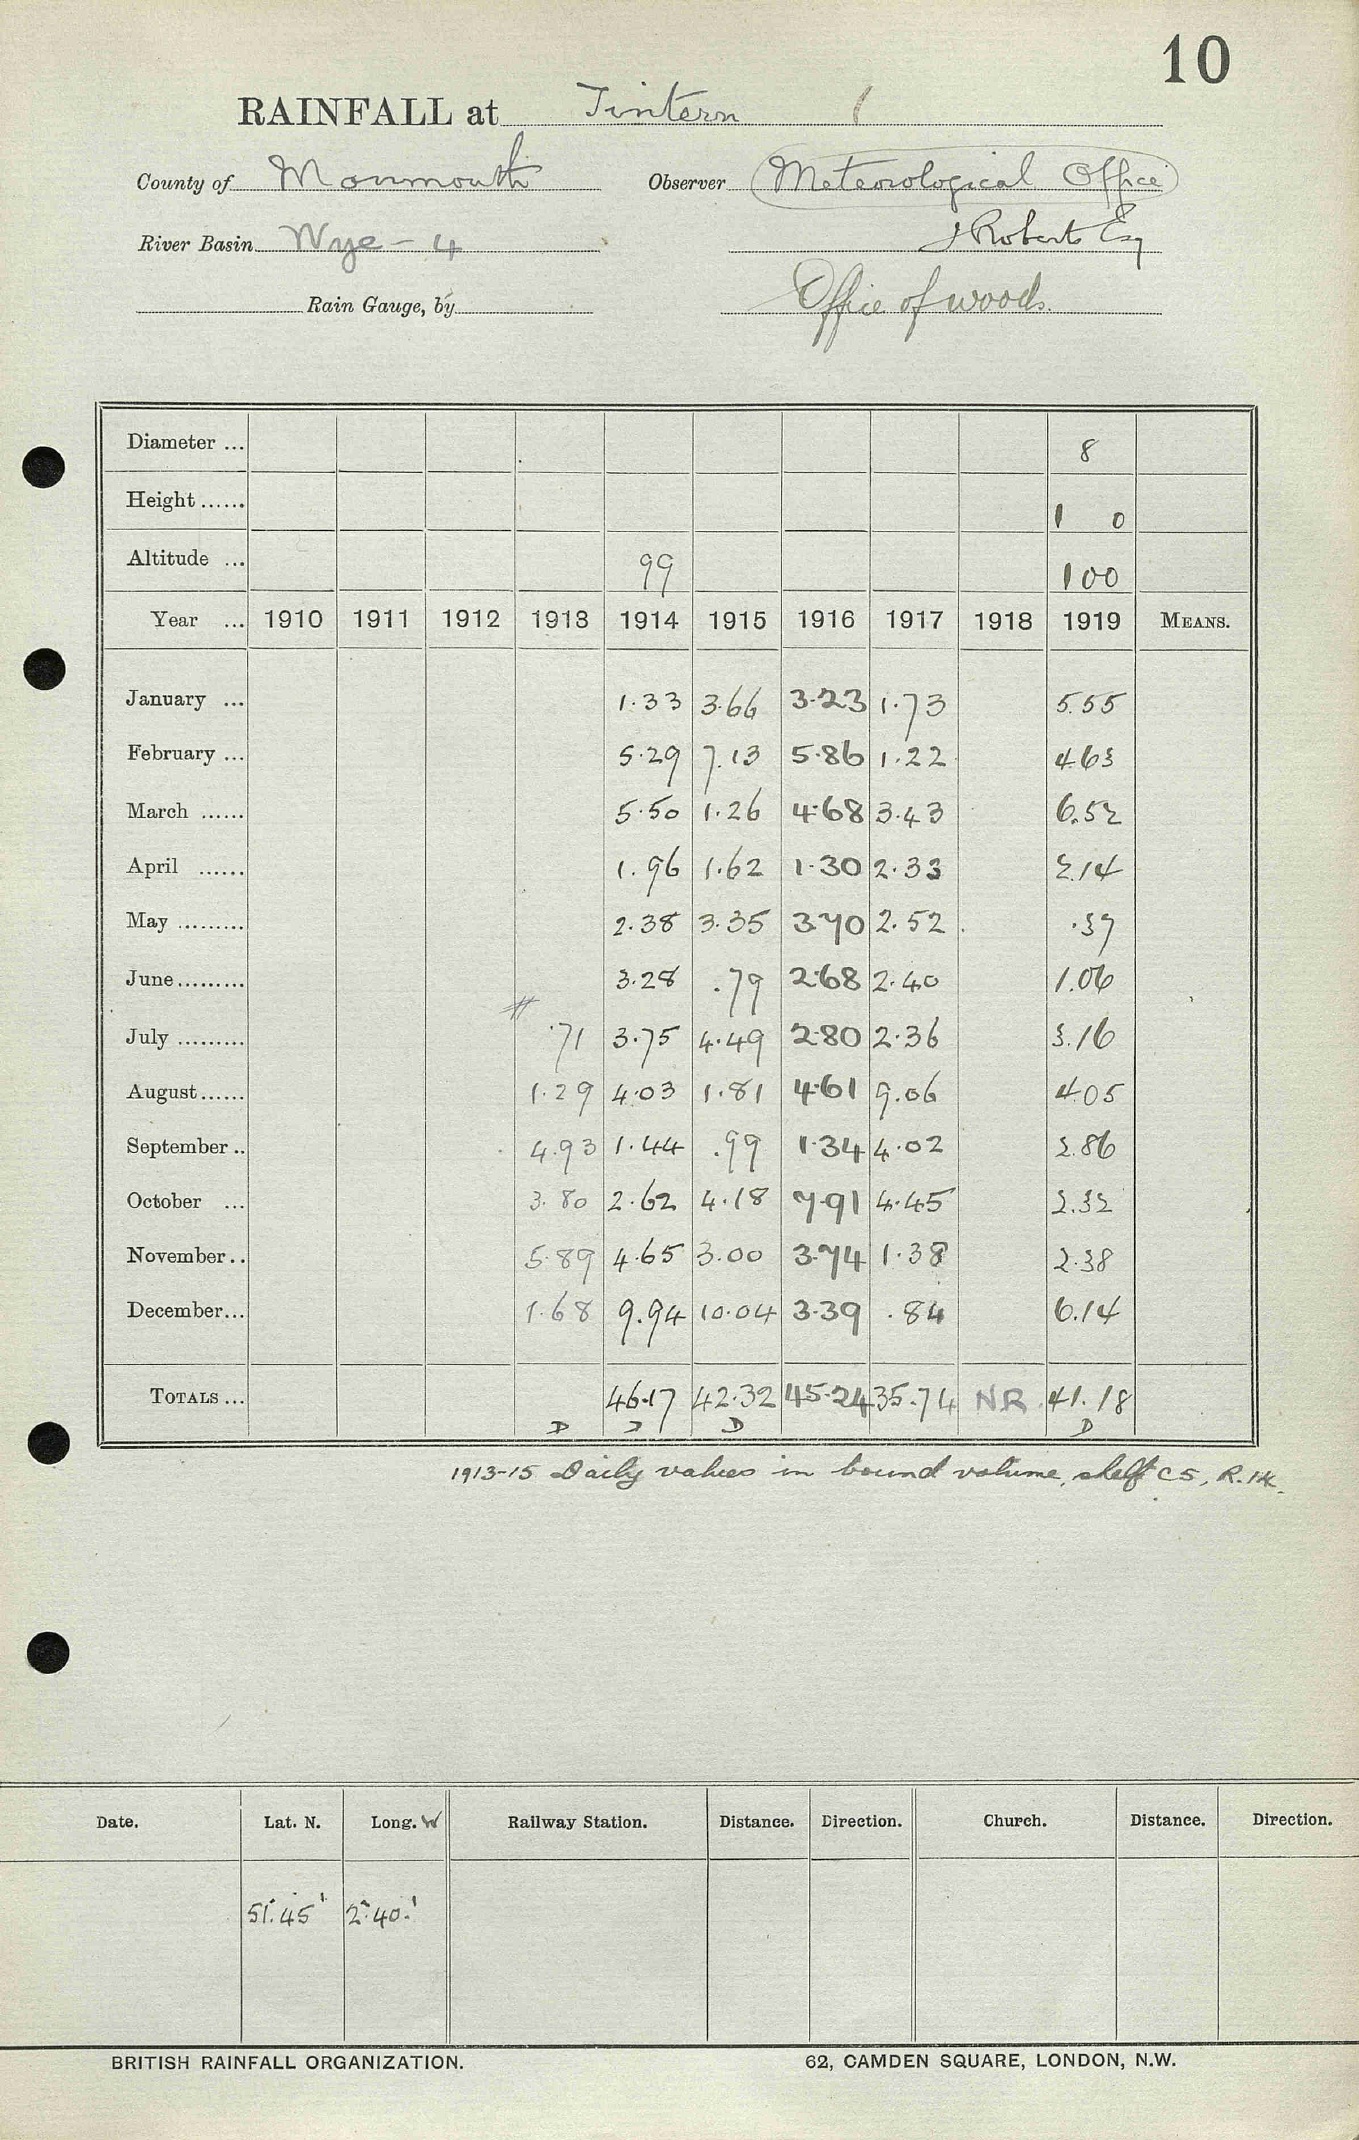 10
RAINFALL at Tintern 1
County of Monmouth Observer Meteorological Office
River Basin Wye - 4 J Roberts Esq
Rain Gauge, by Office of woods.
Diameter ... 8
Height ...... 1 0
Altitude ... 99 100
Year ... 1910 1911 1912 1913 1914 1915 1916 1917 1918 1919 MEANS.
January ... 1.33 3.66 3.23 1.73 5.55
February ... 5.29 7.13 5.86 1.22 4.63
March ...... 5.50 1.26 4.68 3.43 6.52
April ...... 1.96 1.62 1.30 2.33 2.14
May ......... 2.38 3.35 3.70 2.52 .37
June ......... 3.28 .79 2.68 2.40 1.06
July ......... # .71 3.75 4.49 2.80 2.36 3.16
August ...... 1.29 4.03 1.81 4.61 9.06 4.05
September .. 4.93 1.44 .99 1.34 4.02 2.86
October ... 3.80 2.62 4.18 7.91 4.45 2.32
November .. 5.89 4.65 3.00 3.74 1.38 2.38
December ... 1.68 9.94 10.04 3.39 .84 6.14
TOTALS ... 46.17 42.32 45.24 35.74 N.R. 41.18
D D D D
1913-15 Daily values in bound volume, shelf C5, R.
Date. Lat. N. Long. W Railway Station. Distance. Direction. Church. Distance. Direction.
51°.45' 2°.40.'
BRITISH RAINFALL ORGANIZATION. 62, CAMDEN SQUARE, LONDON, N.W.